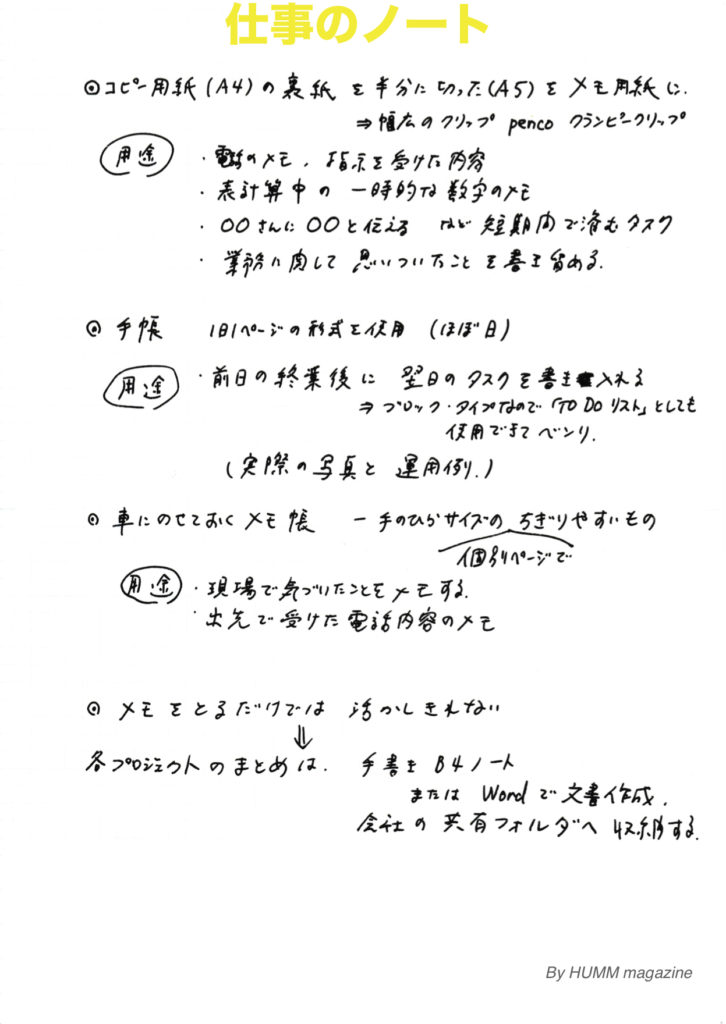 仕事のノート
◎コピー用紙(A4)の裏紙を半分に切った(A5)をメモ用紙に.
⇒幅広のクリップ penco クランピークリップ
用途
・電話のメモ, 指示を受けた内容
・表計算中の一時的な数字のメモ
・〇〇さんに〇〇と伝える など 短期間で済むタスク
・業務に関して思いついたことを書き留める.
◎手帳 1日1ページの形式を使用 (ほぼ日)
用途
・前日の終業後に翌日のタスクを書き入れる
⇒ブロック・タイプなので「TO DO リスト」としても
使用できてベンリ.
(実際の写真と運用例.)
◎車にのせておくメモ帳 ー手のひらサイズのちぎりやすいもの
個別ページで
用途
・現場で気づいたことをメモする.
・出先で受けた電話内容のメモ
◎メモをとるだけでは 活かしきれない
⇓
各プロジェクトのまとめは. 手書き B4ノート
または Wordで文書作成.
会社の共有フォルダへ収納する.
By HUMM magazine